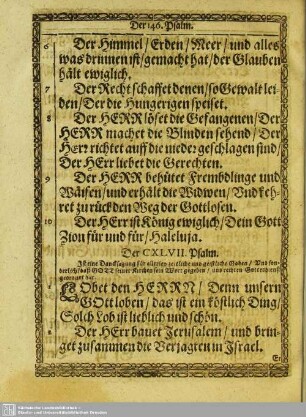 Der 146. Psalm.
6 Der Himmel / Erden / Meer / und alles
was drinnen ist / gemacht hat / der Glauben
hält ewiglich.
7 Der Recht schaffet denen / so Gewalt lei-
den / Der die Hungerigen speiset.
8 Der HERR löset die Gefangenen / Der
HERR machet die Blinden sehend / Der
HErr richtet auff die nieder geschlagen sind /
Der HErr liebet die Gerechten.
9 Der HERR behütet Frembdlinge und
Wäisen / und erhält die Widwen / Und keh-
ret zurück den Weg der Gottlosen.
10 Der HErr ist König ewiglich / Dein Gott
Zion für und für / Haleluja.
Der CXLVII. Psalm.
Ist eine Dancksagung für allerley zeitliche und geistliche Gaben / Und son-
derlich / daß GOTT seiner Kirchen sein Wort gegeben / und rechten Gottesdienst
LObet den HERRN / Denn unsern
GOtt loben / das ist ein köstlich Ding /
Solch Lob ist lieblich und schön.
2 Der HErr bauet Jerusalem / und brin-
get zusammen die Verjagten in Israel.
Er
Sächsische Landesbibliothek -
Staats- und Universitätsbibliothek Dresden